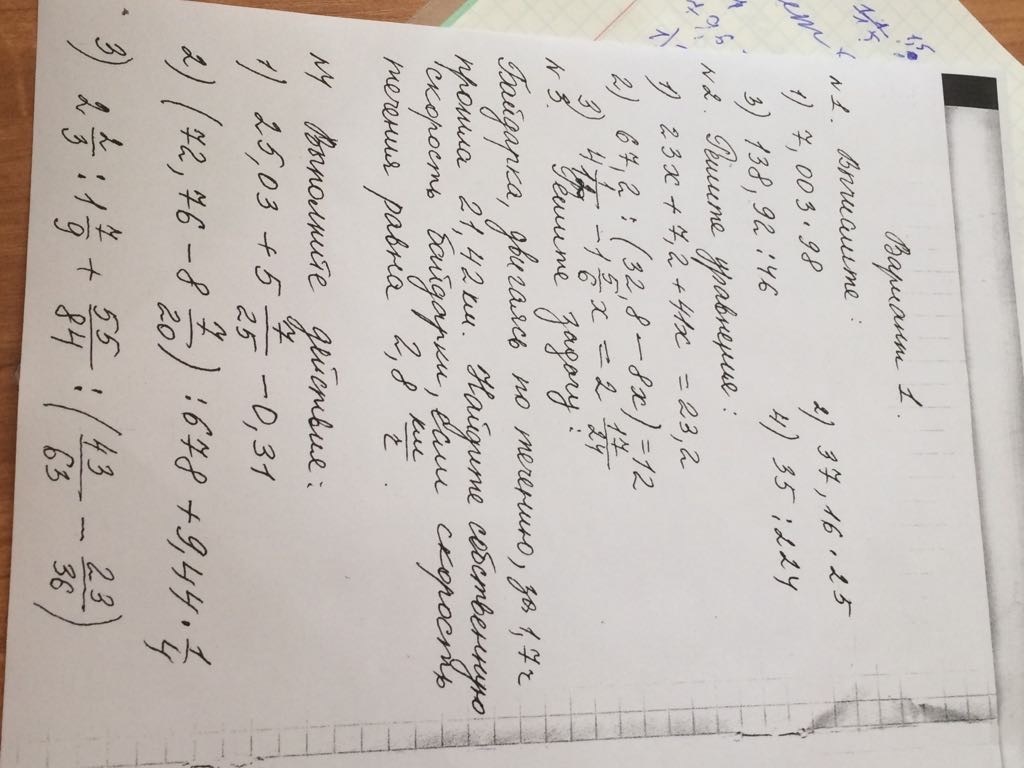 Вариант 1.
№1. Вычислите:
1) 7,003·98 2) 37,16·25
3) 138,92:46 4) 35:224
№2. Решите уравнение:
1) 23x+7,2+44x=23,2
2) 67,2:(32,8-8x)=12
3) -1 5/6 x = 2 17/24
№3. Решите задачу:
Байдарка, двигаясь по течению, за 1,7ч
прошла 21,42км. Найдите собственную
скорость байдарки, если скорость
течения равна 2,8 км/ч.
№4 Выполните действие:
1) 25,03+5 7/25-0,31
2) (72,76-8 7/20):678+9,44·1/4
3) 2 2/3:1 7/9+55/84:(43/63-23/36)